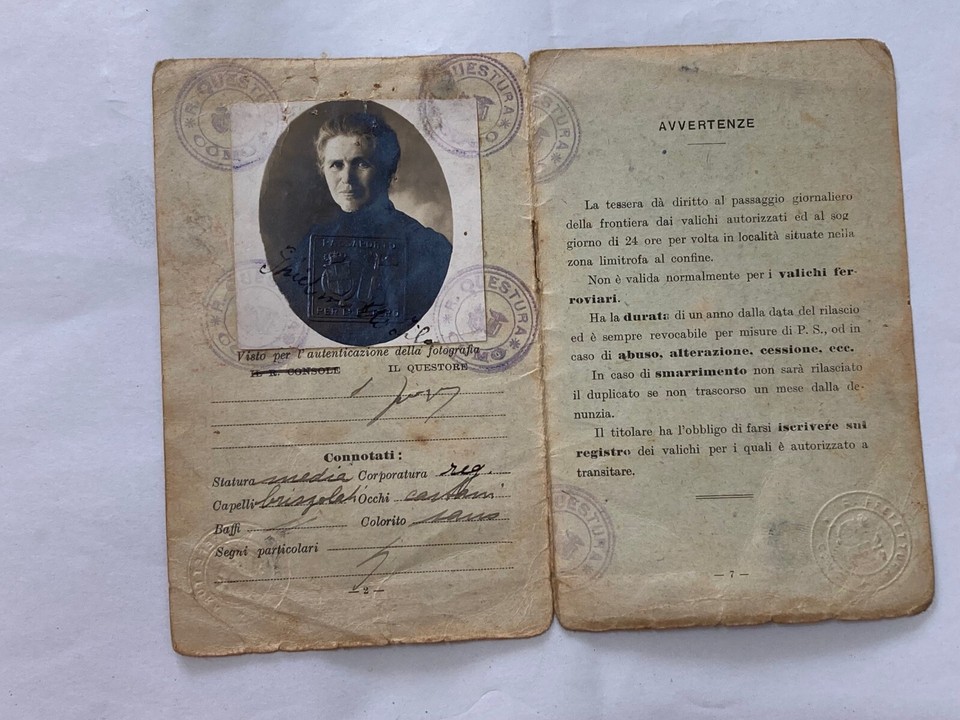 R. QUESTURA
COMO
R. QUESTURA
R. QUESTURA
COMO
PASSAPORTO
PER L'ESTERO
Visto per l'autenticazione della fotografia
IL R. CONSOLE IL QUESTORE
Connotati :
Statura media Corporatura reg.
Capelli brizzolati Occhi castani
Baffi Colorito sano
Segni particolari
— 2 —
QUESTURA
AVVERTENZE
La tessera dà diritto al passaggio giornaliero
della frontiera dai valichi autorizzati ed al sog
giorno di 24 ore per volta in località situate nella
zona limitrofa al confine.
Non è valida normalmente per i valichi fer-
roviari.
Ha la durata di un anno dalla data del rilascio
ed è sempre revocabile per misure di P. S., od in
caso di abuso, alterazione, cessione, ecc.
In caso di smarrimento non sarà rilasciato
il duplicato se non trascorso un mese dalla de-
nunzia.
Il titolare ha l'obbligo di farsi iscrivere sul
registro dei valichi per i quali è autorizzato a
transitare.
QUESTURA
— 7 —